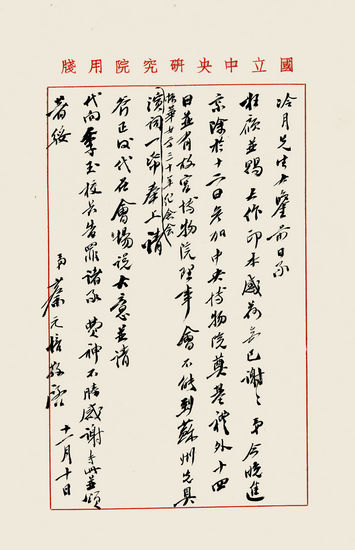 國立中央研究院用牋
冷月先生大鑒前日承
枉顧並賜大作印本感荷無已謝〻弟今晚進
京除於十二日參加中央博物院奠基禮外十四
日並有故宮博物院理事會不能到蘇州先具
振華女學三十年紀念會
演詞一帋奉上請
正代在會場說大意並請
代向季玉校長告罪諸承費神不勝感謝專此並頌
著綏
弟蔡元培敬啓
十一月十日